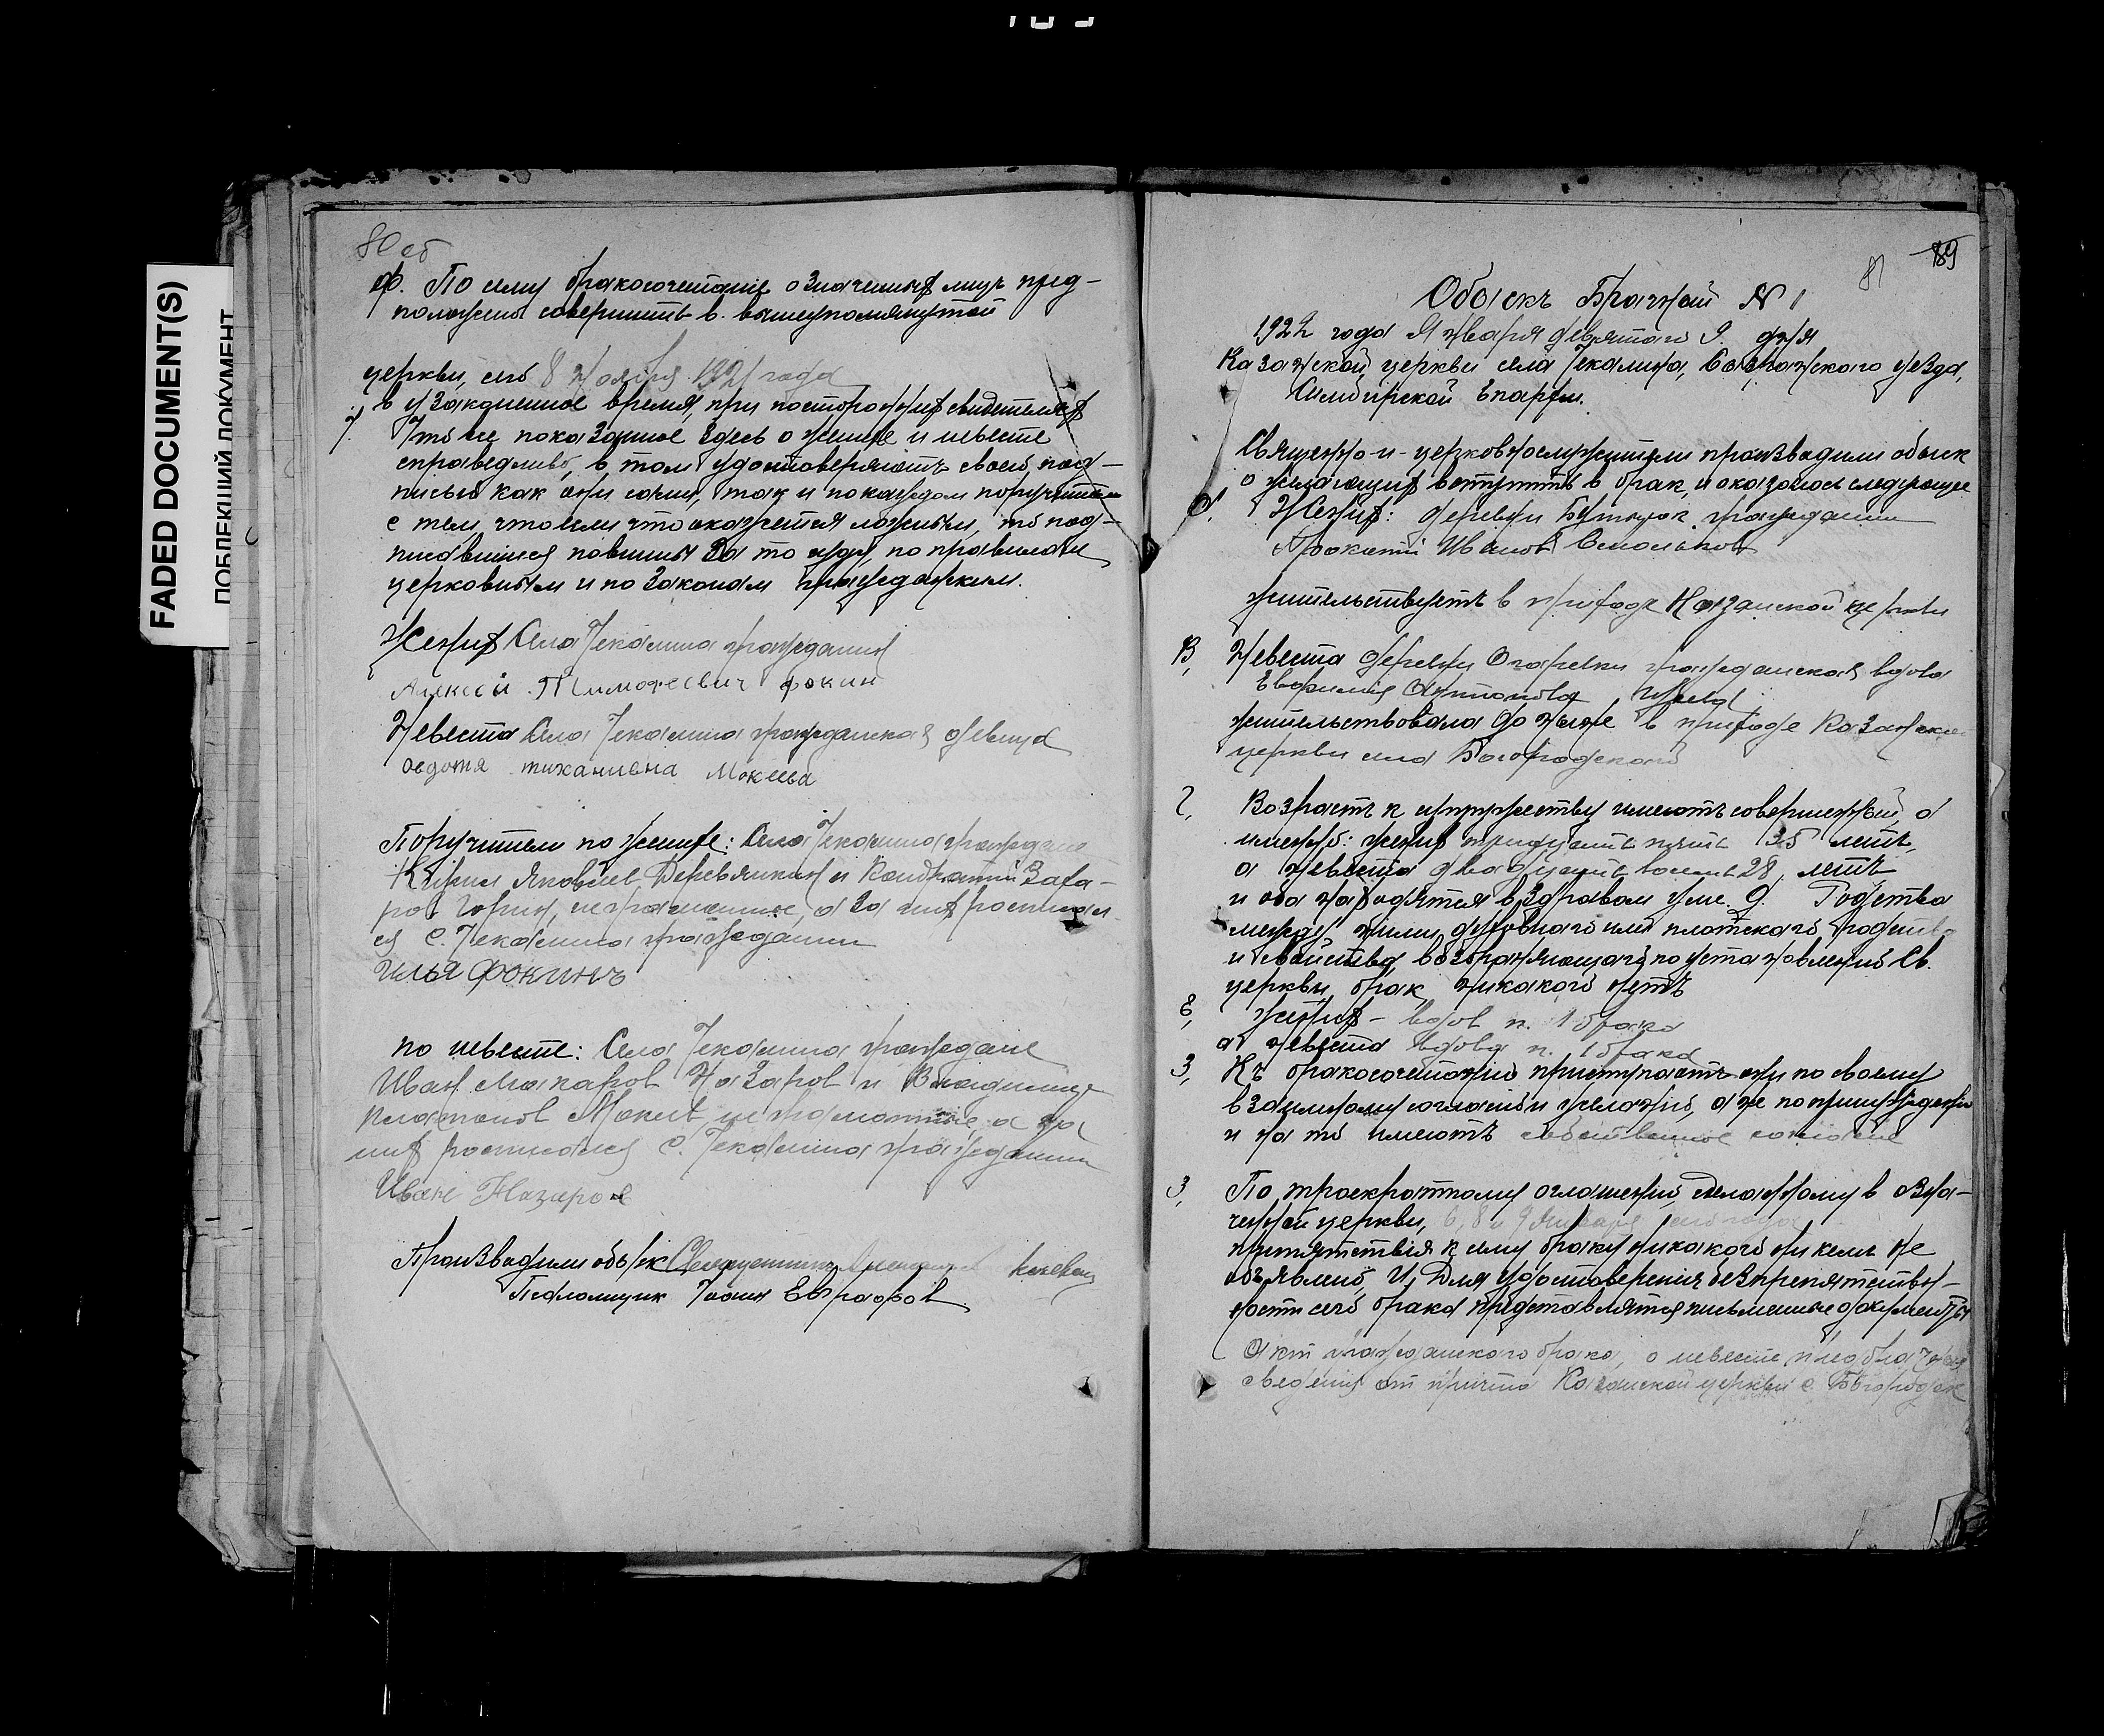 FADED DOCUMENT(S)
ПОБЛЕКШИЙ ДОКУМЕНТ
80 об
Ф. По сему бракосочетание означенных лиц пред-
положено совершить в вышеупомянутой
церкви, сего 8 Ноября 1921 года
в узаконенное время, при посторонних свидетелях
Что все показанное здесь о женихе и невесте
справедливо, в том удостоверяют своей под-
писью как они сами, так и по каждом поручители
с тем, что если что окажется ложным, то под-
писавшиеся повинны за то суду по правилам
церковным и по законам гражданским.
Жених Села Чекалина гражданин
Алексей Тимофеевич Фокин
Невеста Села Чекалина гражданская девица
Овдотя Мокеева
Поручители по женихе: Села Чекалина граждане
Яковлев Деревянкин и Кондратий Заха-
ров Горин, неграмотные, а за них росписал-
ся с. Чекалина гражданин
Илья Фокинъ
по невесте: Села Чекалина граждане
Иван Макаров Назаров и Владимир
Платонов Мокеев неграмотные а за
них росписался с. Чекалина гражданин
Иване Назаров
Производили обыск Священник
Псаломщик Иоанн Евграфов
81
89
Обыскъ Брачный № 1
1922 года Января девятаго 9. дня
Казанской церкви села Чекалина, Сызранского уезда,
Симбирской Епархии.
Священно-и-церковнослужители производили обыск
о желающих вступить в брак, и оказалось следующее
Жених: деревни Бутырок гражданин
Иванов Смольков
жительствуетъ в приходе Казанской церкви
В, Невеста деревни Огаревки гражданская вдова
Евфимия Антонова
жительствовала до ныне в приходе Казанской
церкви села Богородского
Г, Возрастъ к супружеству имеютъ совершенный, а
именно: жених тридцать пять 35 летъ,
а невеста двадцать восемь 28, летъ
и оба находятся в здравом уме. Д. Родства
между ними, духовного или плотского родства
и свойства, возбраняющаго по установлений Св.
церкви, брак, никакого нетъ
Е, Жених – вдов п. 1 брака
а невеста вдова п. 1 брака
З, Къ бракосочетанию приступаютъ они по своему
взаимному согласию и желанию, а не по принуждению
и на то имеютъ собственное согласие
З, По троекратному оглашению, сделанному в озна-
ченной церкви, 6, 8 и 9 Января сего года
препятствия к сему браку никакого ни кемъ не
объявлено, И, Для удостоверения безпрепятствен-
ности сего брака представлятся письменные документы
Акт гражданского брака, о невесте предбрачные
сведения от причта Казанской церкви с. Богородск